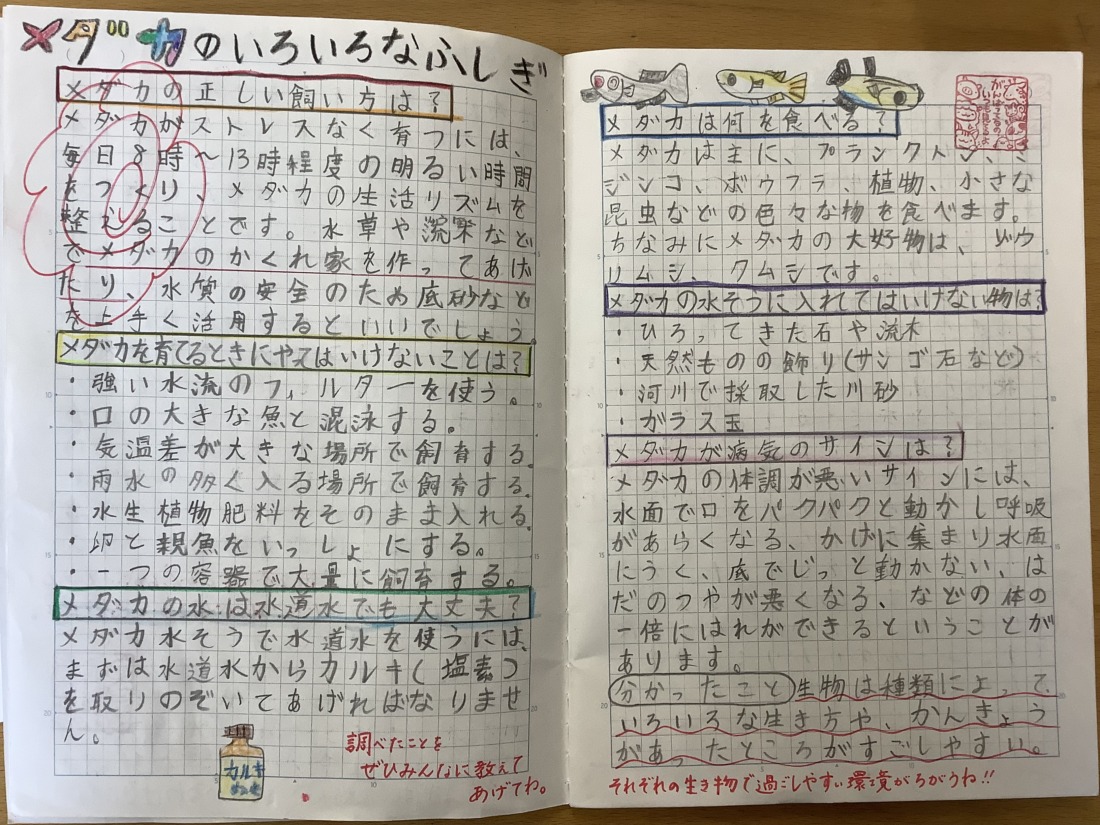 メダカのいろいろなふしぎ
メダカの正しい飼い方は?
メダカがストレスなく育つには、
毎日8時〜13時程度の明るい時間
をつくり、メダカの生活リズムを
整えることです。水草や流木など
でメダカのかくれ家を作ってあげ
たり、水質の安全のため底砂など
を上手く活用するといいでしょう。
メダカを育てるときにやってはいけないことは?
・強い水流のフィルターを使う。
・口の大きな魚と混泳する。
・気温差が大きな場所で飼育する。
・雨水の多く入る場所で飼育する。
・水生植物肥料をそのまま入れる。
・卵と親魚をいっしょにする。
・一つの容器で大量に飼育する。
メダカの水は水道水でも大丈夫?
メダカ水そうで水道水を使うには、
まずは水道水からカルキ(塩素)
を取りのぞいてあげればなりませ
ん。
カルキ
調べたことを
ぜひみんなに教えて
あげてね。
メダカは何を食べる?
メダカは主に、プランクトン、ミ
ジンコ、ボウフラ、植物、小さな
昆虫などの色々な物を食べます。
ちなみにメダカの大好物は、ゾウ
リムシ、クムシです。
メダカの水そうに入れてはいけない物は?
・ひろってきた石や流木
・天然ものの飾り(サンゴ石など)
・河川で採取した川砂
・ガラス玉
メダカが病気のサインは?
メダカの体調が悪いサインには、
水面で口をパクパクと動かし呼吸
があらくなる、かげに集まり水面
にうく、底でじっと動かない、は
だのつやが悪くなる、などの体の
一倍にはれができるということが
あります。
分かったこと 生物は種類によって
いろいろな生き方や、かんきょう
があったところがすごしやすい。
それぞれの生き物で過ごしやすい環境がちがうね!!